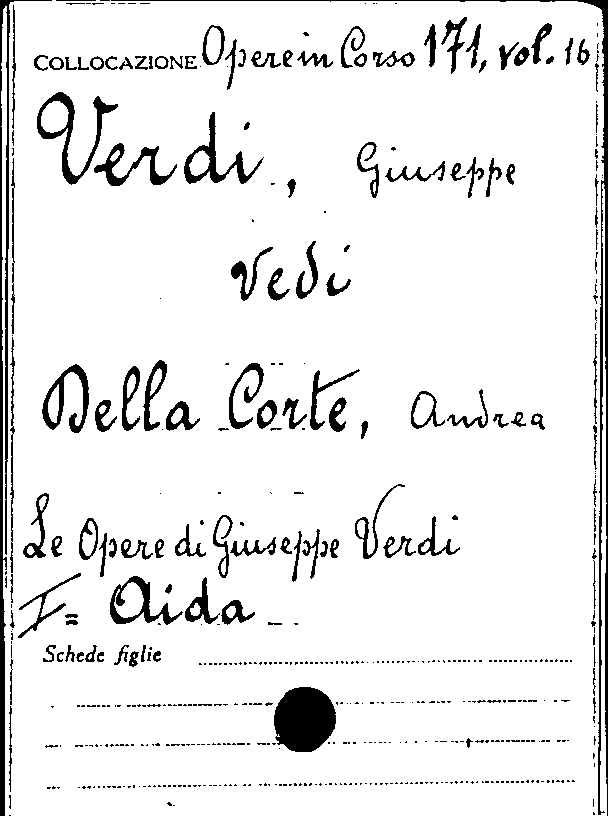 COLLOCAZIONE Opere in Corso 171, vol. 16
Verdi, Giuseppe
vedi
Della Corte, Andrea
Le Opere di Giuseppe Verdi
I= Aida
Schede figlie